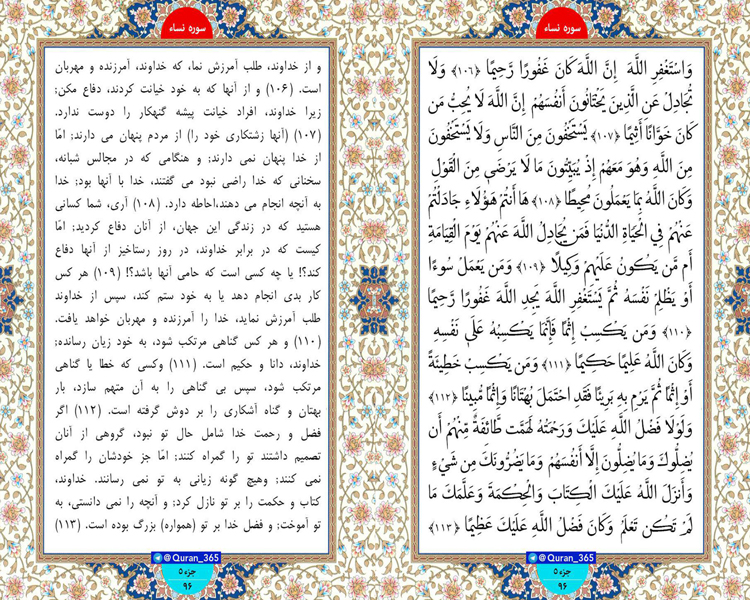 سوره نساء
وَاسْتَغْفِرِ اللَّهَ إِنَّ اللَّهَ كَانَ غَفُورًا رَّحِيمًا ﴿۱۰۶﴾ وَلَا
تُجَادِلْ عَنِ الَّذِينَ يَخْتَانُونَ أَنفُسَهُمْ إِنَّ اللَّهَ لَا يُحِبُّ مَن
كَانَ خَوَّانًا أَثِيمًا ﴿۱۰۷﴾ يَسْتَخْفُونَ مِنَ النَّاسِ وَلَا يَسْتَخْفُونَ
مِنَ اللَّهِ وَهُوَ مَعَهُمْ إِذْ يُبَيِّتُونَ مَا لَا يَرْضَى مِنَ الْقَوْلِ
وَكَانَ اللَّهُ بِمَا يَعْمَلُونَ مُحِيطًا ﴿۱۰۸﴾ هَا أَنتُمْ هَؤُلَاءِ جَادَلْتُمْ
عَنْهُمْ فِي الْحَيَاةِ الدُّنْيَا فَمَن يُجَادِلُ اللَّهَ عَنْهُمْ يَوْمَ الْقِيَامَةِ
أَم مَّن يَكُونُ عَلَيْهِمْ وَكِيلًا ﴿۱۰۹﴾ وَمَن يَعْمَلْ سُوءًا
أَوْ يَظْلِمْ نَفْسَهُ ثُمَّ يَسْتَغْفِرِ اللَّهَ يَجِدِ اللَّهَ غَفُورًا رَّحِيمًا
﴿۱۱۰﴾ وَمَن يَكْسِبْ إِثْمًا فَإِنَّمَا يَكْسِبُهُ عَلَى نَفْسِهِ
وَكَانَ اللَّهُ عَلِيمًا حَكِيمًا ﴿۱۱۱﴾ وَمَن يَكْسِبْ خَطِيئَةً
أَوْ إِثْمًا ثُمَّ يَرْمِ بِهِ بَرِيئًا فَقَدِ احْتَمَلَ بُهْتَانًا وَإِثْمًا مُّبِينًا ﴿۱۱۲﴾
وَلَوْلَا فَضْلُ اللَّهِ عَلَيْكَ وَرَحْمَتُهُ لَهَمَّت طَّائِفَةٌ مِّنْهُمْ أَن
يُضِلُّوكَ وَمَا يُضِلُّونَ إِلَّا أَنفُسَهُمْ وَمَا يَضُرُّونَكَ مِن شَيْءٍ
وَأَنزَلَ اللَّهُ عَلَيْكَ الْكِتَابَ وَالْحِكْمَةَ وَعَلَّمَكَ مَا
لَمْ تَكُن تَعْلَمُ وَكَانَ فَضْلُ اللَّهِ عَلَيْكَ عَظِيمًا ﴿۱۱۳﴾
@Quran_365
جزء ۵
۹۶
سوره نساء
و از خداوند، طلب آمرزش نما، که خداوند، آمرزنده و مهربان
است. (۱۰۶) و از آنها که به خود خیانت کردند، دفاع مکن؛
زیرا خداوند، افراد خیانت پیشه گنهکار را دوست ندارد.
(۱۰۷) (آنها زشتکاری خود را) از مردم پنهان می دارند؛ امّا
از خدا پنهان نمی دارند؛ و هنگامی که در مجالس شبانه،
سخنانی که خدا راضی نبود می گفتند، خدا با آنها بود؛ خدا
به آنچه انجام می دهند،احاطه دارد. (۱۰۸) آری، شما کسانی
هستید که در زندگی این جهان، از آنان دفاع کردید؛ امّا
کیست که در برابر خداوند، در روز رستاخیز از آنها دفاع
کند؟! یا چه کسی است که حامی آنها باشد؟! (۱۰۹) هر کس
کار بدی انجام دهد یا به خود ستم کند، سپس از خداوند
طلب آمرزش نماید، خدا را آمرزنده و مهربان خواهد یافت.
(۱۱۰) و هر کس گناهی مرتکب شود، به خود زیان رسانده؛
خداوند، دانا و حکیم است. (۱۱۱) وکسی که خطا یا گناهی
مرتکب شود، سپس بی گناهی را به آن متهم سازد، بار
بهتان و گناه آشکاری را بر دوش گرفته است. (۱۱۲) اگر
فضل و رحمت خدا شامل حال تو نبود، گروهی از آنان
تصمیم داشتند تو را گمراه کنند؛ امّا جز خودشان را گمراه
نمی کنند؛ وهیچ گونه زیانی به تو نمی رسانند. خداوند،
کتاب و حکمت را بر تو نازل کرد؛ و آنچه را نمی دانستی، به
تو آموخت؛ و فضل خدا بر تو (همواره) بزرگ بوده است. (۱۱۳)
@Quran_365
جزء ۵
۹۶